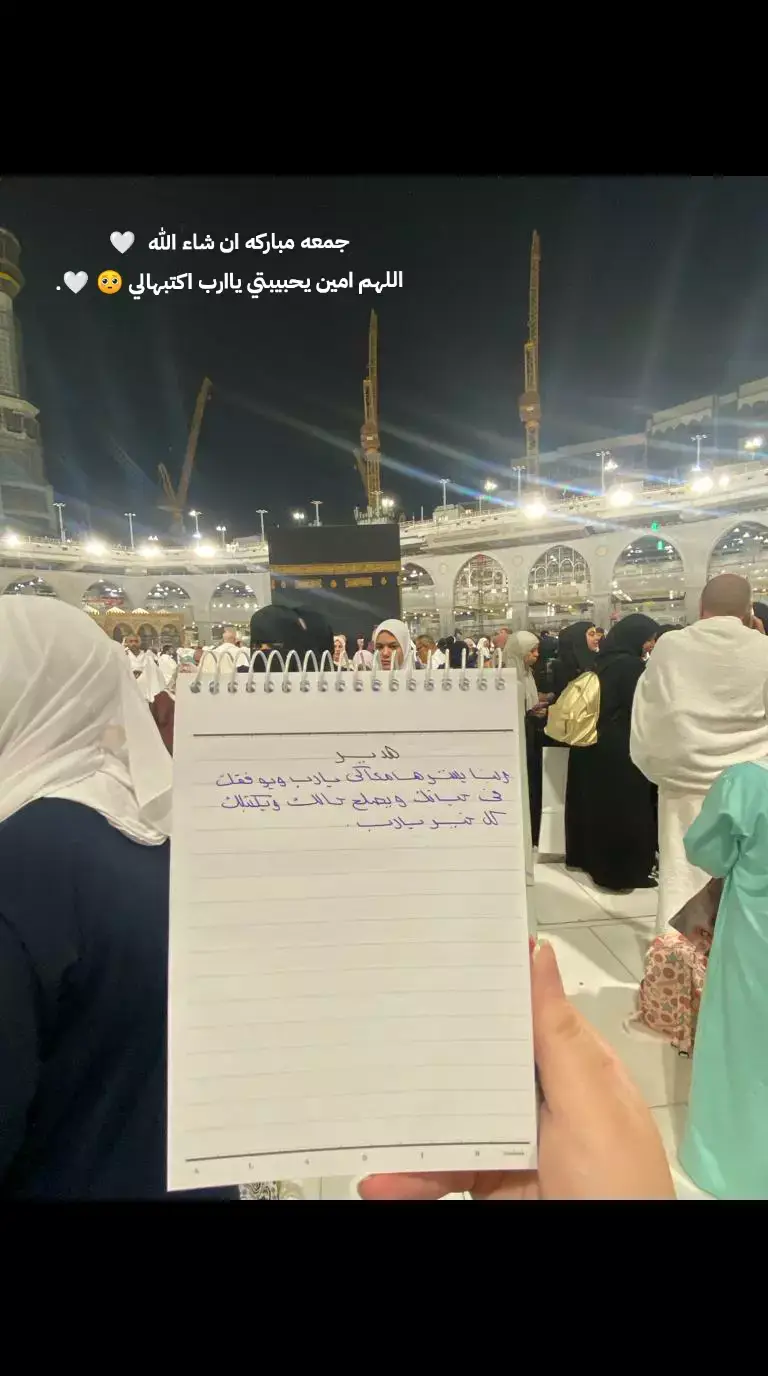 جمعه مباركه ان شاء الله 🤍
اللهم امين يحبيبتي ياارب اكتبهالي 🥺 🤍.
هدير
ربنا يسترها معاكى يارب ويوفقك
فى حياتك ويصلح حالك ويكتبلك
كل خير يارب.